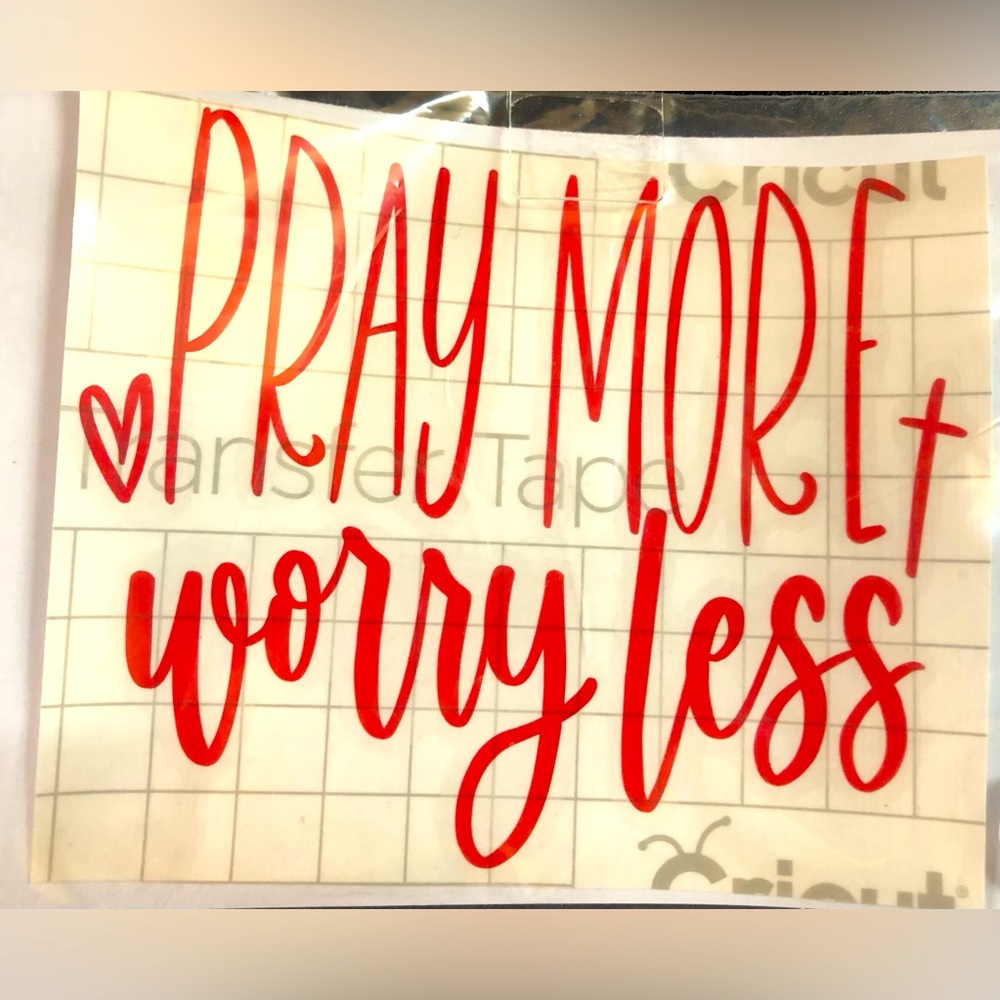 Cricut
PRAY MORE
Transfer Tape
worry less
Cricut